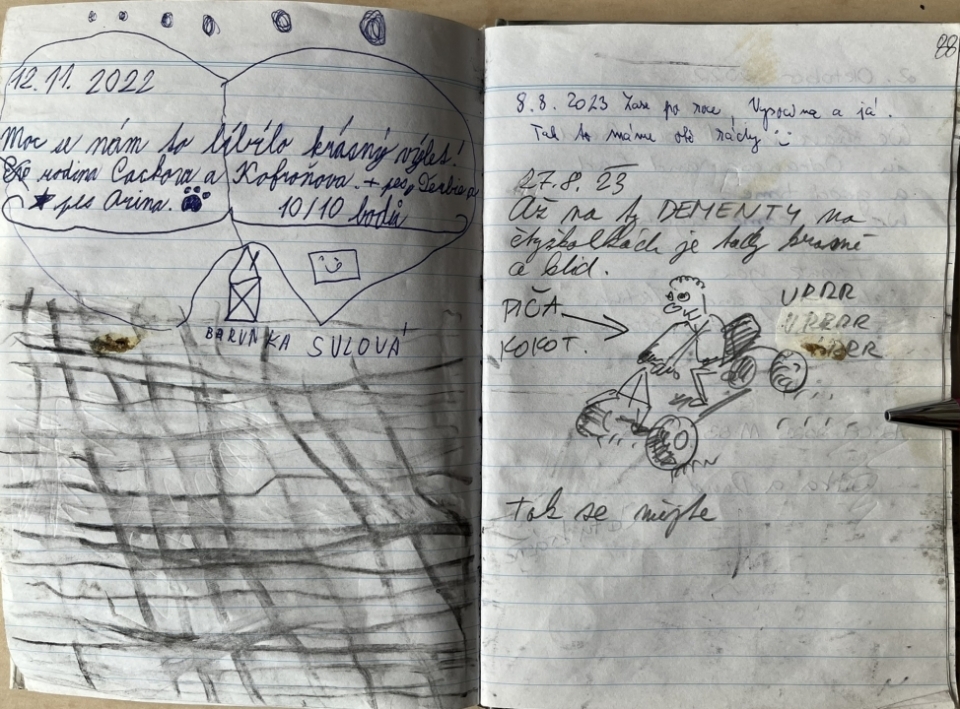 12.11. 2022
Moc se nám to líbilo krásný výlet!
rodina Cackova a Kofroňova. + pes Derbie a
pes Arina.
10/10 bodů
BARUNKA SULOVÁ
88
8.8. 2023 Zase po roce Vysočina a já.
Tak to máme obě rády :)
27.8. 23
Až na ty DEMENTY na
čtyřkolkách je tady krasně
a klid.
PIČA
KOKOT.
VRRR
VRRRR
RR
tak se mějte